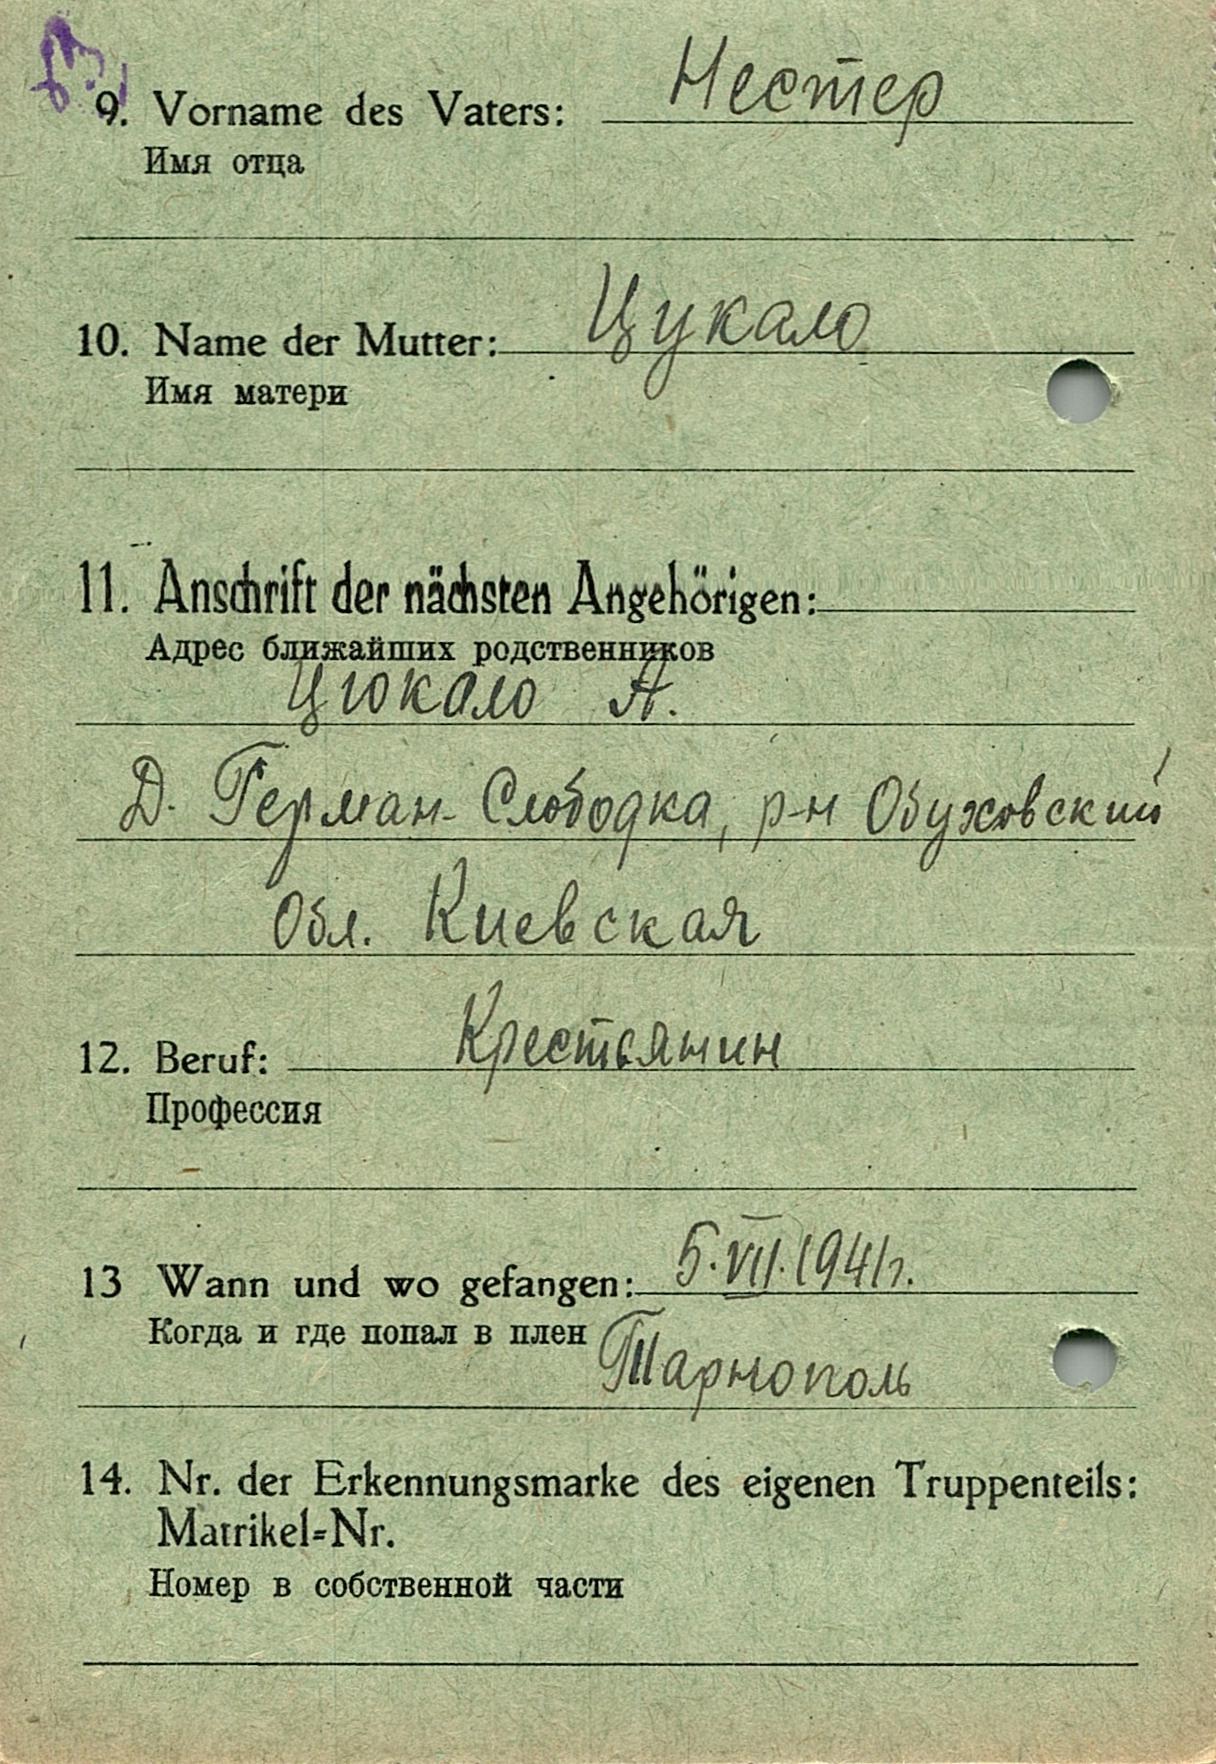 9. Vorname des Vaters: Нестер
Имя отца
10. Name der Mutter: Цукало
Имя матери
11. Anschrift der nächsten Angehörigen:
Адрес ближайших родственников
Цюкало А.
Д. Герман-Слободка, р-н Обуховский
Обл. Киевская
12. Beruf: Крестьянин
Профессия
13 Wann und wo gefangen: 5.VII.1941г.
Когда и где попал в плен Тарнополь
14. Nr. der Erkennungsmarke des eigenen Truppenteils:
Matrikel=Nr.
Номер в собственной части